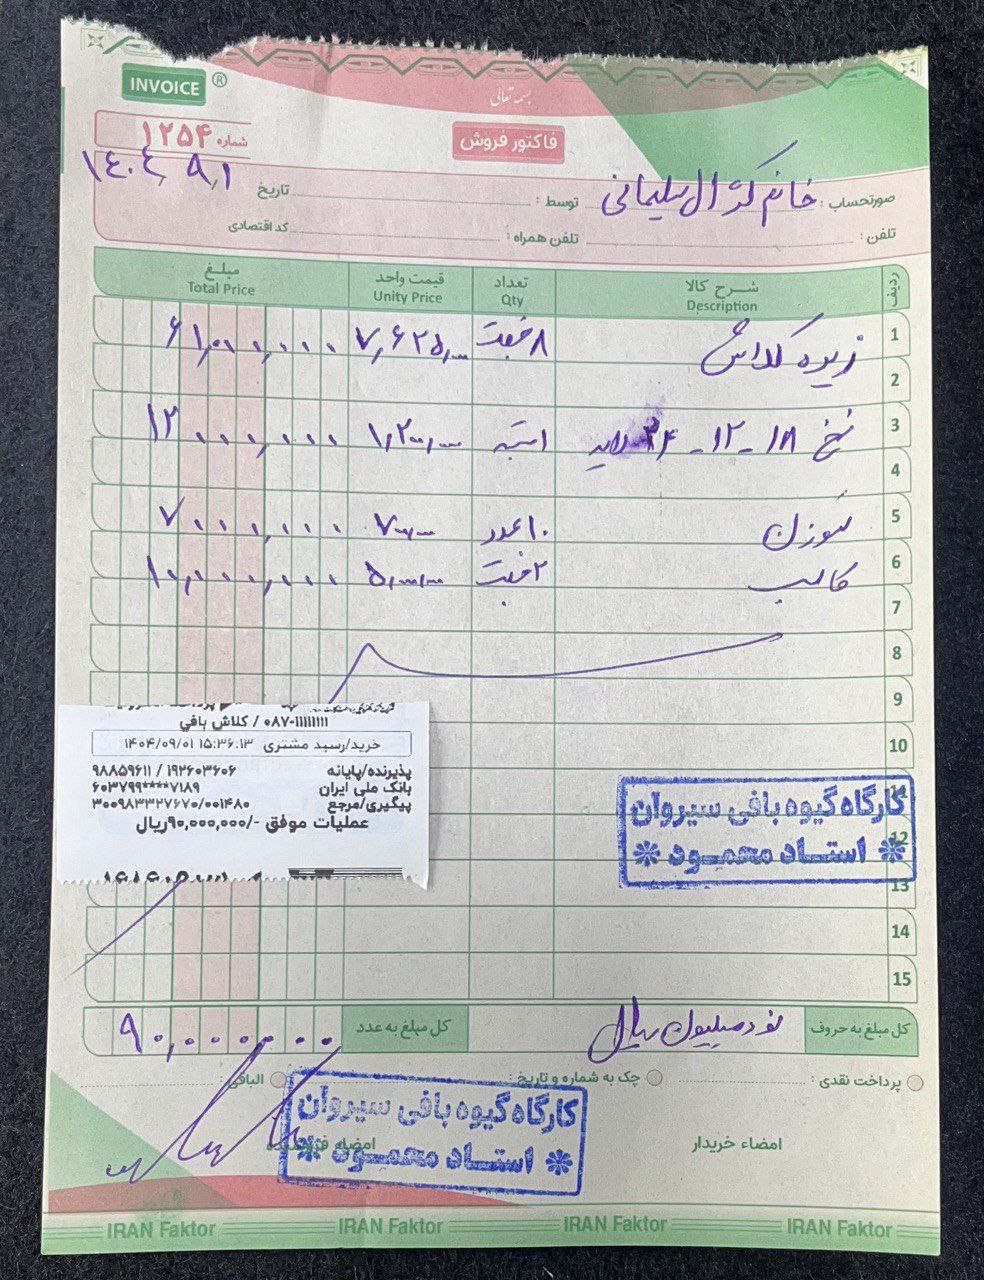 بسمه تعالی
INVOICE ®
فاکتور فروش
شماره ۱۲۵۴
صورتحساب : خانم کژال سلیمانی توسط : تاریخ ۱۴۰۴,۹,۱
تلفن : تلفن همراه : کد اقتصادی
ردیف شرح کالا تعداد قیمت واحد مبلغ
Description Qty Unity Price Total Price
1 زیره کلاش ۸ جفت ۷,۶۲۵,۰۰۰ ۶۱,۰۰۰,۰۰۰
2
3 نخ ۱۸-۱۲-۲۴ لاید ۱ بسته ۱,۲۰۰,۰۰۰ ۱۲,۰۰۰,۰۰۰
4
5 سوزن ۱۰ عدد ۷۰۰,۰۰۰ ۷,۰۰۰,۰۰۰
6 قالب ۲ جفت ۵,۰۰۰,۰۰۰ ۱۰,۰۰۰,۰۰۰
7
8
9
10
11
12
13
14
15
۰۸۷-۱۱۱۱۱۱۱۱ / کلاش بافي
خرید/رسید مشتری ۱۴۰۴/۰۹/۰۱ ۱۵:۳۶:۱۳
پذیرنده/پایانه ۱۹۲۶۰۳۶۰۶ / ۹۸۸۵۹۶۱۱
بانک ملی ایران ۶۰۳۷۹۹****۷۱۸۹
پیگیری/مرجع ۳۰۰۹۸۳۳۲۷۶۷۰/۰۰۱۴۸۰
عملیات موفق -/۹۰,۰۰۰,۰۰۰ریال
کارگاه گیوه بافی سیروان
استاد محمود
کل مبلغ به حروف نود میلیون ریال کل مبلغ به عدد ۹۰,۰۰۰,۰۰۰
پرداخت نقدی : چک به شماره و تاریخ : الباقی :
کارگاه گیوه بافی سیروان
استاد محمود
امضاء خریدار امضاء فروشنده
IRAN Faktor IRAN Faktor IRAN Faktor IRAN Faktor